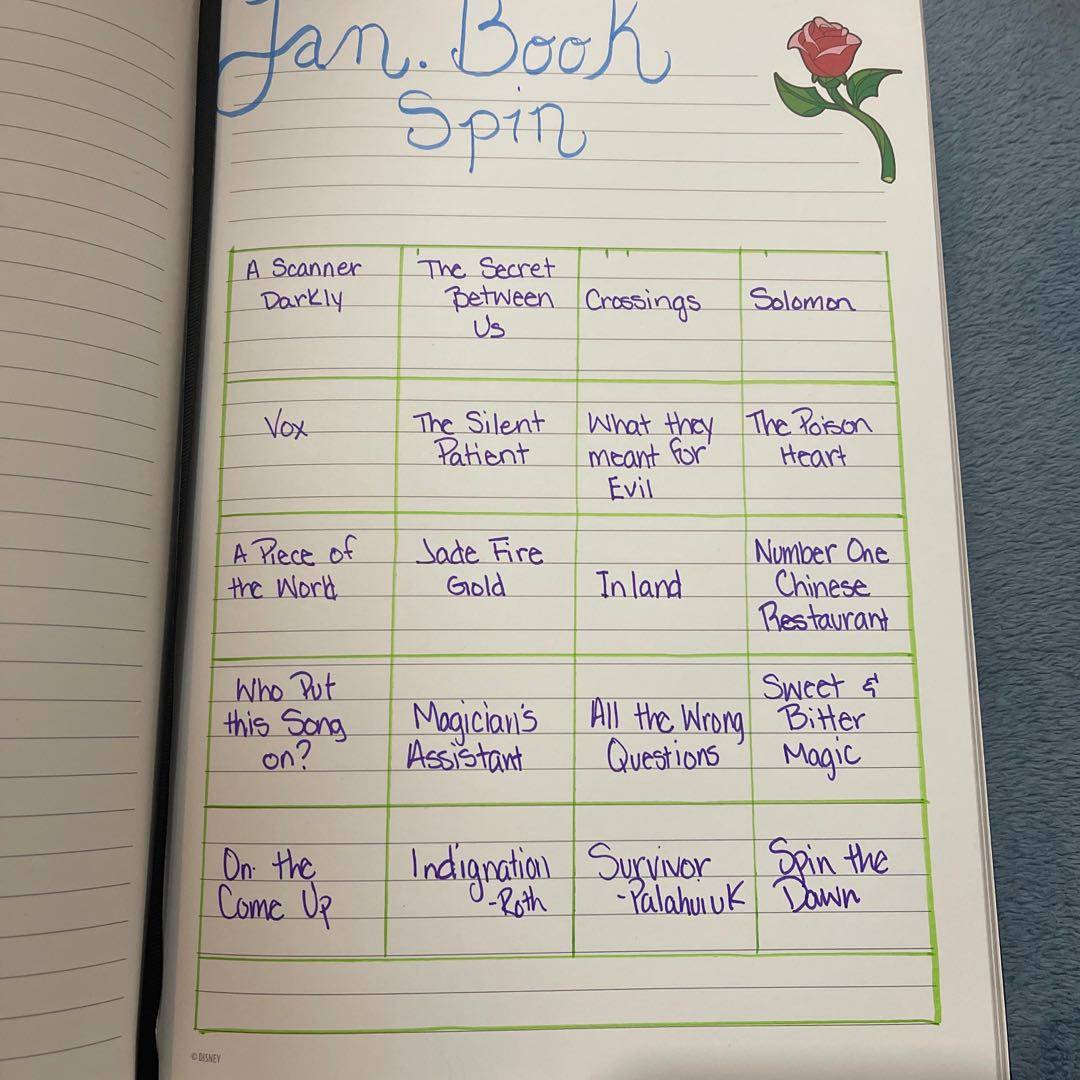 Jan. Book
Spin
A Scanner
Darkly
The Secret
Between
Us
Crossings
Solomon
Vox
The Silent
Patient
What they
meant for
Evil
The Poison
Heart
A Piece of
the World
Jade Fire
Gold
Inland
Number One
Chinese
Restaurant
Who Put
this Song
on?
Magician's
Assistant
All the Wrong
Questions
Sweet &
Bitter
Magic
On the
Come Up
Indignation
-Roth
Survivor
-Palahuiuk
Spin the
Dawn
© DISNEY